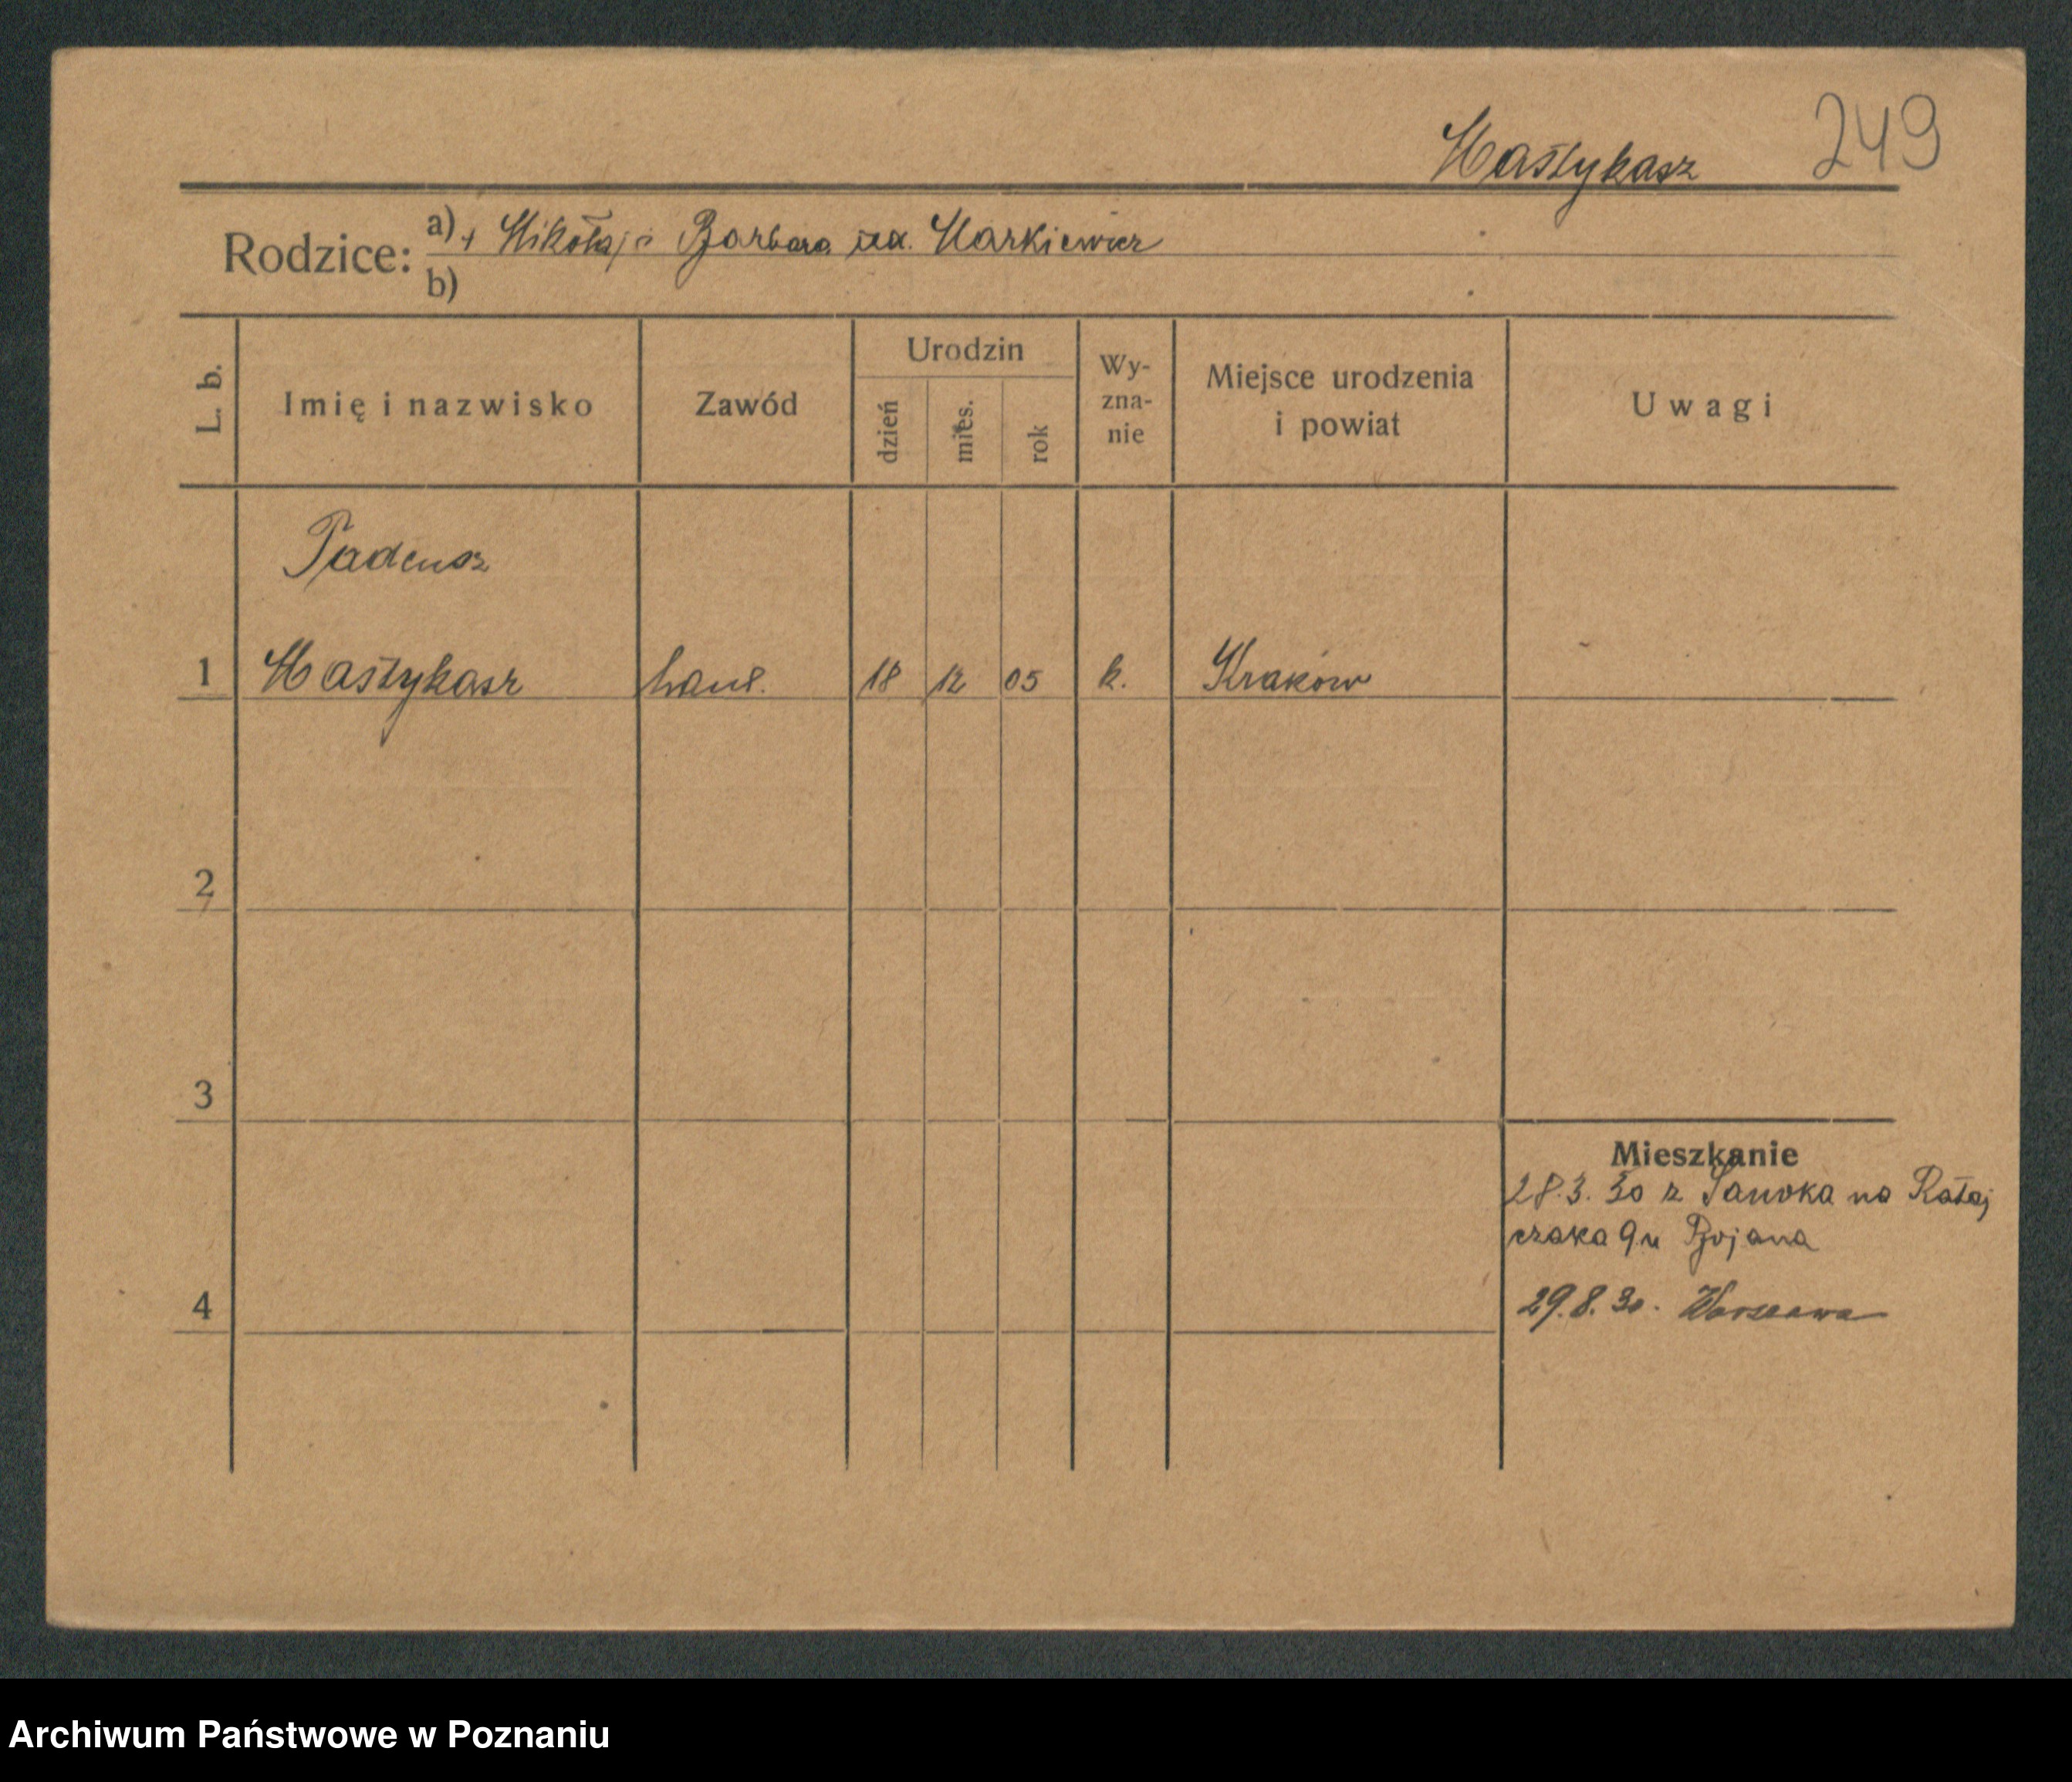 Mastykarz
249
Rodzice: a) + Mikołaj i Barbara Markiewicz
b)
L. b.
Imię i nazwisko
Zawód
Urodzin
dzień
mies.
rok
Wy-
zna-
nie
Miejsce urodzenia
i powiat
Uwagi
Tadeusz
1 Mastykarz handl. 18 12 05 k. Kraków
2
3
Mieszkanie
28.3.30 z Sanoka na Rataj
czaka 9 u Bojana
4
29.8.30. Warszawa
Archiwum Państwowe w Poznaniu